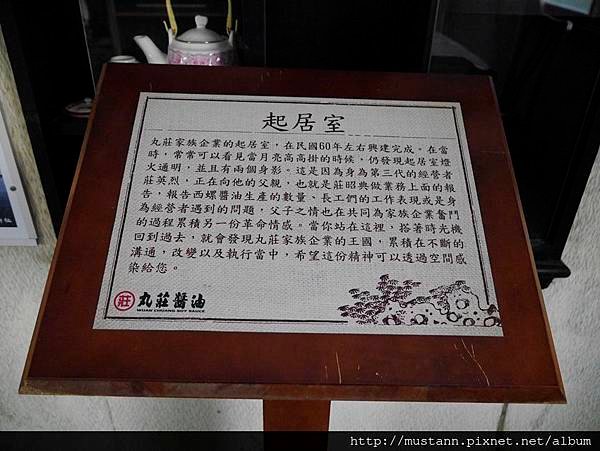 起居室
丸莊家族企業的起居室，在民國60年左右興建完成。在當
時，常常可以看見當月亮高高掛的時候，仍發現起居室燈
火通明，並且有兩個身影。這是因為身為第三代的經營者
莊英烈，正在向他的父親，也就是莊昭典做業務上面的報
告，報告西螺醬油生產的數量、長工們的工作表現或是身
為經營者遇到的問題，父子之情也在共同為家族企業奮鬥
的過程累積另一份革命情感。當你站在這裡，搭著時光機
回到過去，就會發現丸莊家族企業的王國，累積在不斷的
溝通，改變以及執行當中，希望這份精神可以透過空間感
染給您。
莊 丸莊醬油
WUAN CHUANG SOY SAUCE
http://mustann.pixnet.net/album